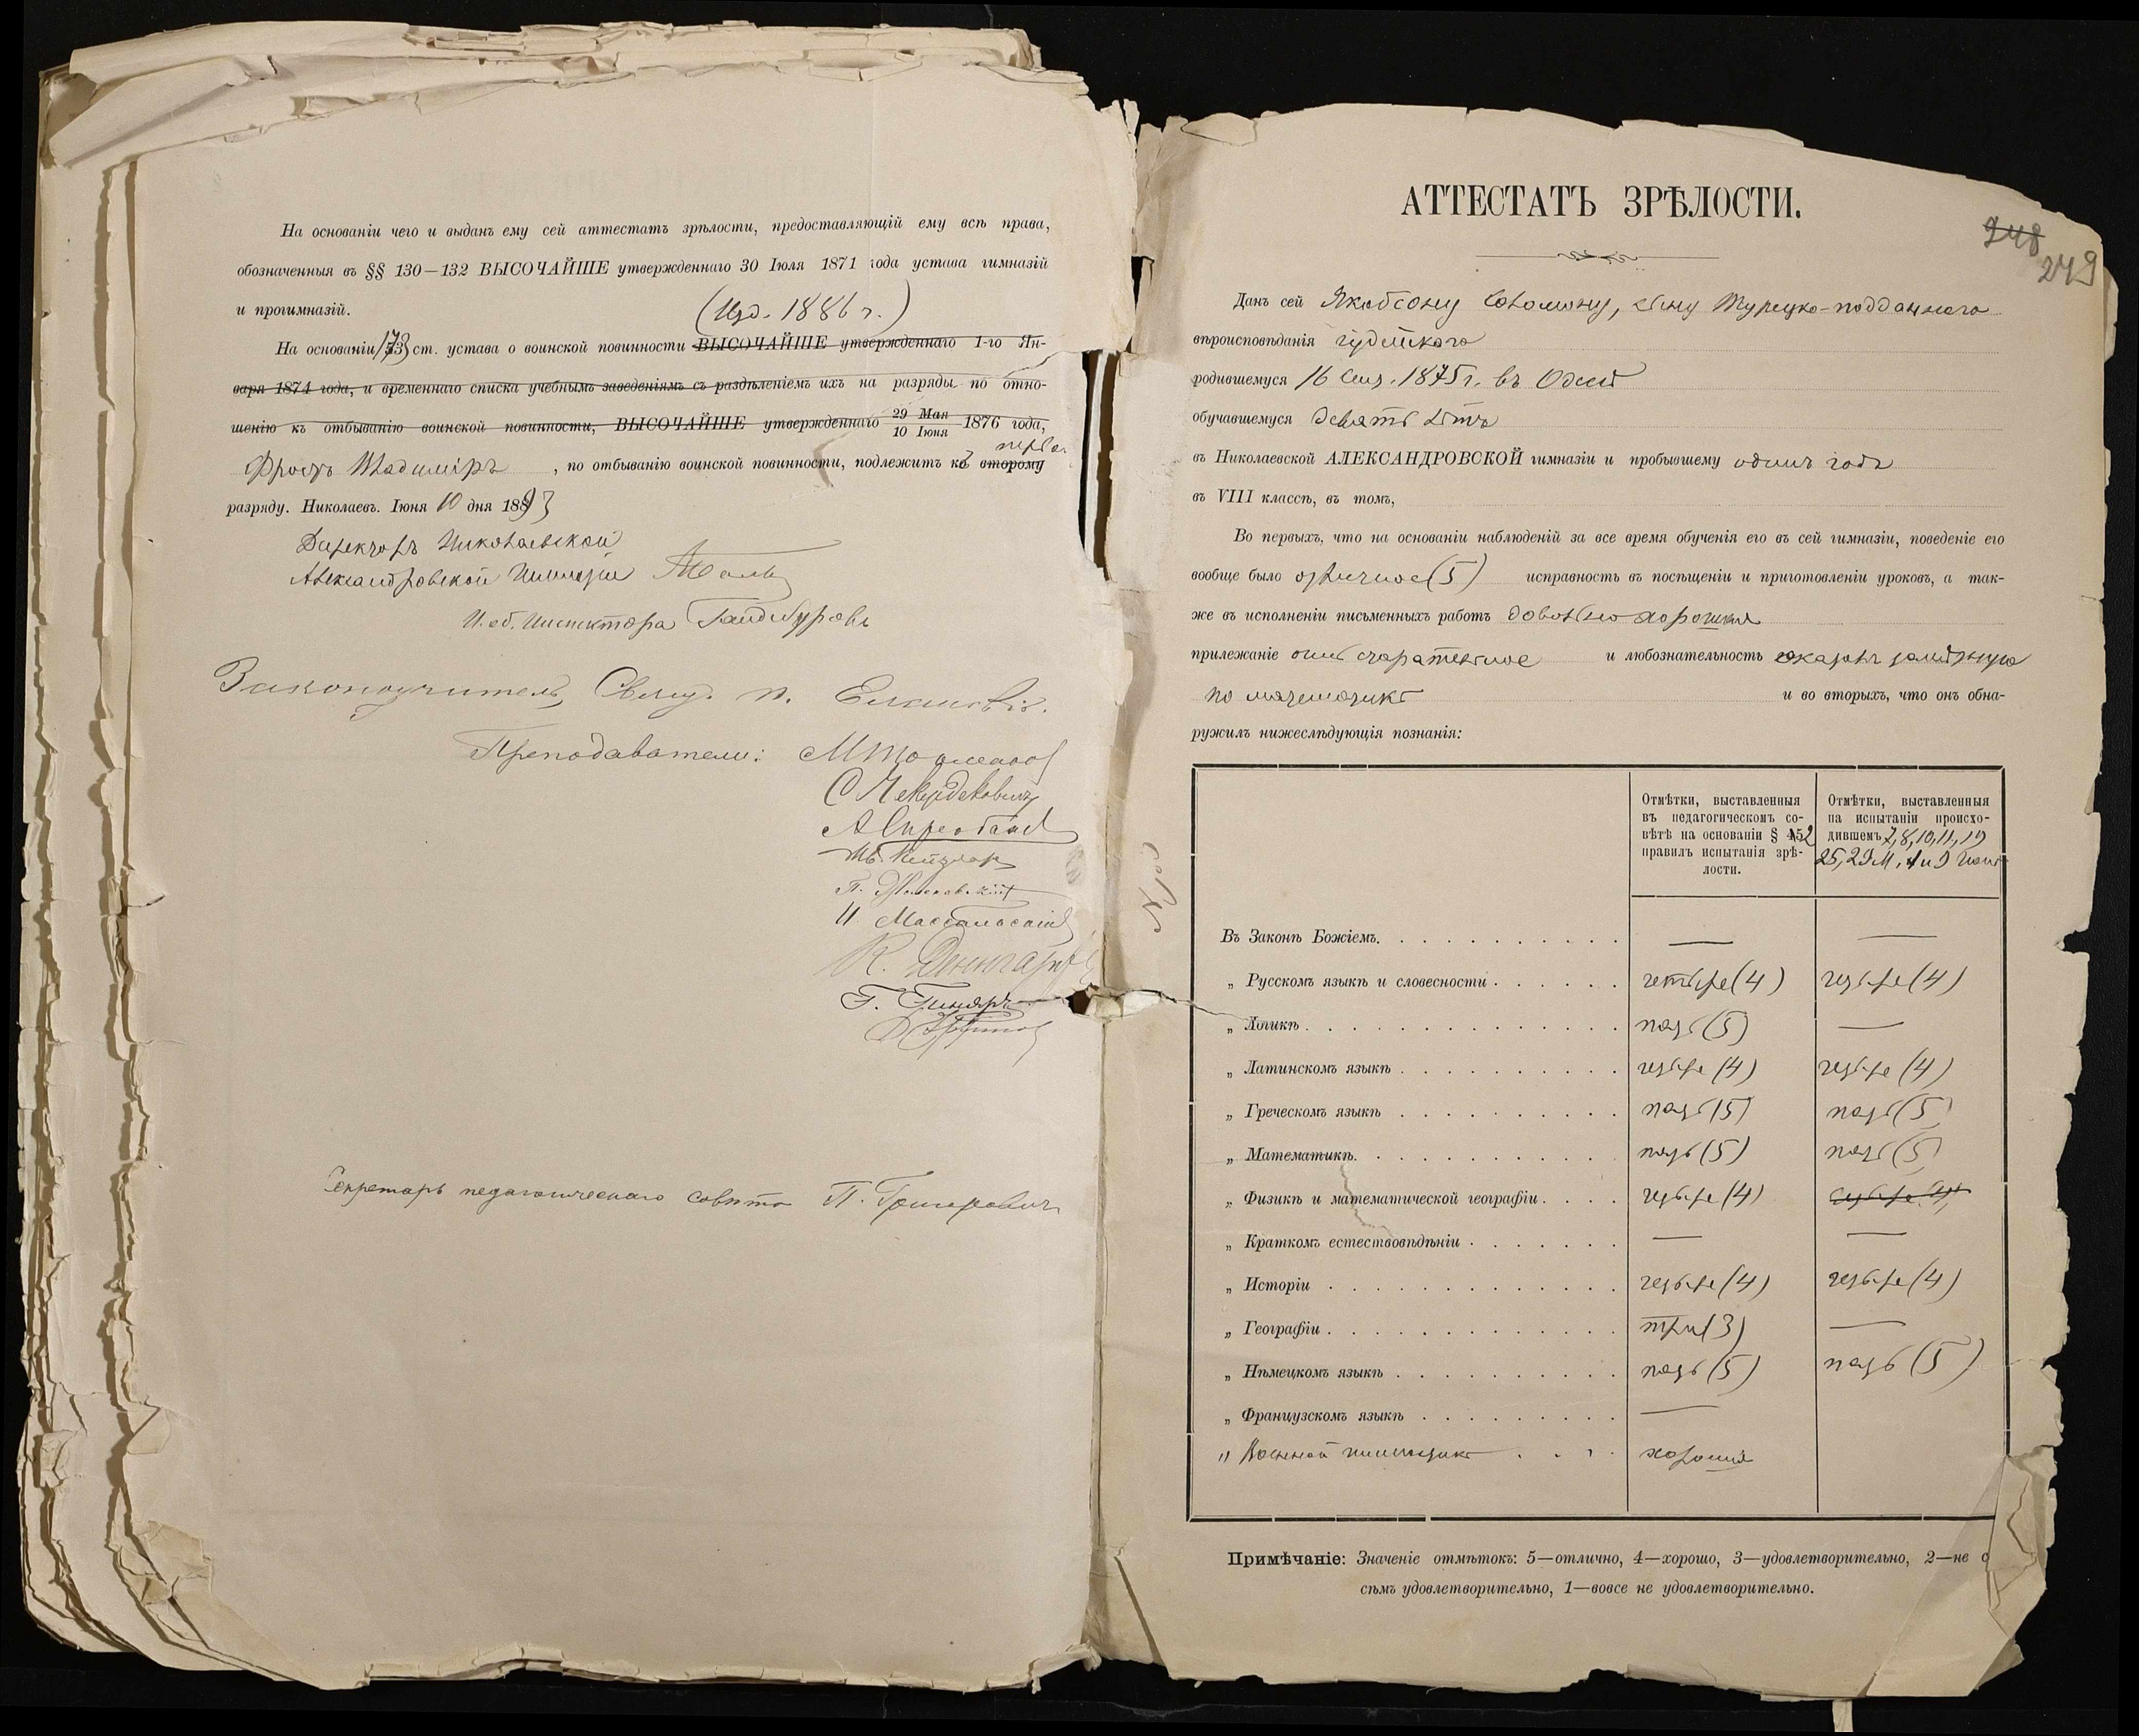 На основаніи чего и выданъ ему сей аттестатъ зрѣлости, предоставляющій ему всѣ права,
обозначенныя въ §§ 130—132 ВЫСОЧАЙШЕ утвержденнаго 30 Іюля 1871 года устава гимназій
и прогимназій.
(Изд. 1886 г.)
На основаніи 173 ст. устава о воинской повинности ВЫСОЧАЙШЕ утвержденнаго 1-го Ян-
варя 1874 года, и временнаго списка учебнымъ заведеніямъ съ раздѣленіемъ ихъ на разряды по отно-
шенію къ отбыванію воинской повинности, ВЫСОЧАЙШЕ утвержденнаго 29 Мая 10 Іюня 1876 года,
перво
Фростъ Владиміръ, по отбыванію воинской повинности, подлежитъ къ второму
разряду. Николаевъ. Іюня 10 дня 1893
Директоръ Николаевской
Александровской Гимназіи
И. об. Инспектора
Законоучитель, Свящ. п.
Преподаватели:
И. Массальскій
Г. Гиняръ
Секретарь педагогическаго совѣта П. Григоровичъ
АТТЕСТАТЪ ЗРѢЛОСТИ.
248
249
Данъ сей Якобсону Соломону, сыну Турецко-подданнаго
вѣроисповѣданія іудейскаго
родившемуся 16 Сент. 1875 г. въ Одессѣ
обучавшемуся девять лѣтъ
въ Николаевской АЛЕКСАНДРОВСКОЙ гимназіи и пробывшему одинъ годъ
въ VIII классѣ, въ томъ,
Во первыхъ, что на основаніи наблюденій за все время обученія его въ сей гимназіи, поведеніе его
вообще было отличное (5) исправность въ посѣщеніи и приготовленіи уроковъ, а так-
же въ исполненіи письменныхъ работъ довольно хорошая
прилежаніе очень старательное и любознательность оказалъ замѣтную
по математикѣ и во вторыхъ, что онъ обна-
ружилъ нижеслѣдующія познанія:
Отмѣтки, выставленныя
въ педагогическомъ со-
вѣтѣ на основаніи § 52
правилъ испытанія зрѣ-
лости.
Отмѣтки, выставленныя
на испытаніи происхо-
дившемъ 7, 8, 10, 11, 19
25, 29 М, 1 и 9 Іюня
Въ Законѣ Божіемъ. — —
„ Русскомъ языкѣ и словесности четыре (4) четыре (4)
„ Логикѣ пять (5) —
„ Латинскомъ языкѣ четыре (4) четыре (4)
„ Греческомъ языкѣ пять (5) пять (5)
„ Математикѣ. пять (5) пять (5)
„ Физикѣ и математической географіи четыре (4) четыре (4)
„ Краткомъ естествовѣдѣніи — —
„ Исторіи четыре (4) четыре (4)
„ Географіи три (3) —
„ Нѣмецкомъ языкѣ пять (5) пять (5)
„ Французскомъ языкѣ —
„ Военной гимнастикѣ хорошія
Примѣчаніе: Значеніе отмѣтокъ: 5—отлично, 4—хорошо, 3—удовлетворительно, 2—не с
сѣмъ удовлетворительно, 1—вовсе не удовлетворительно.